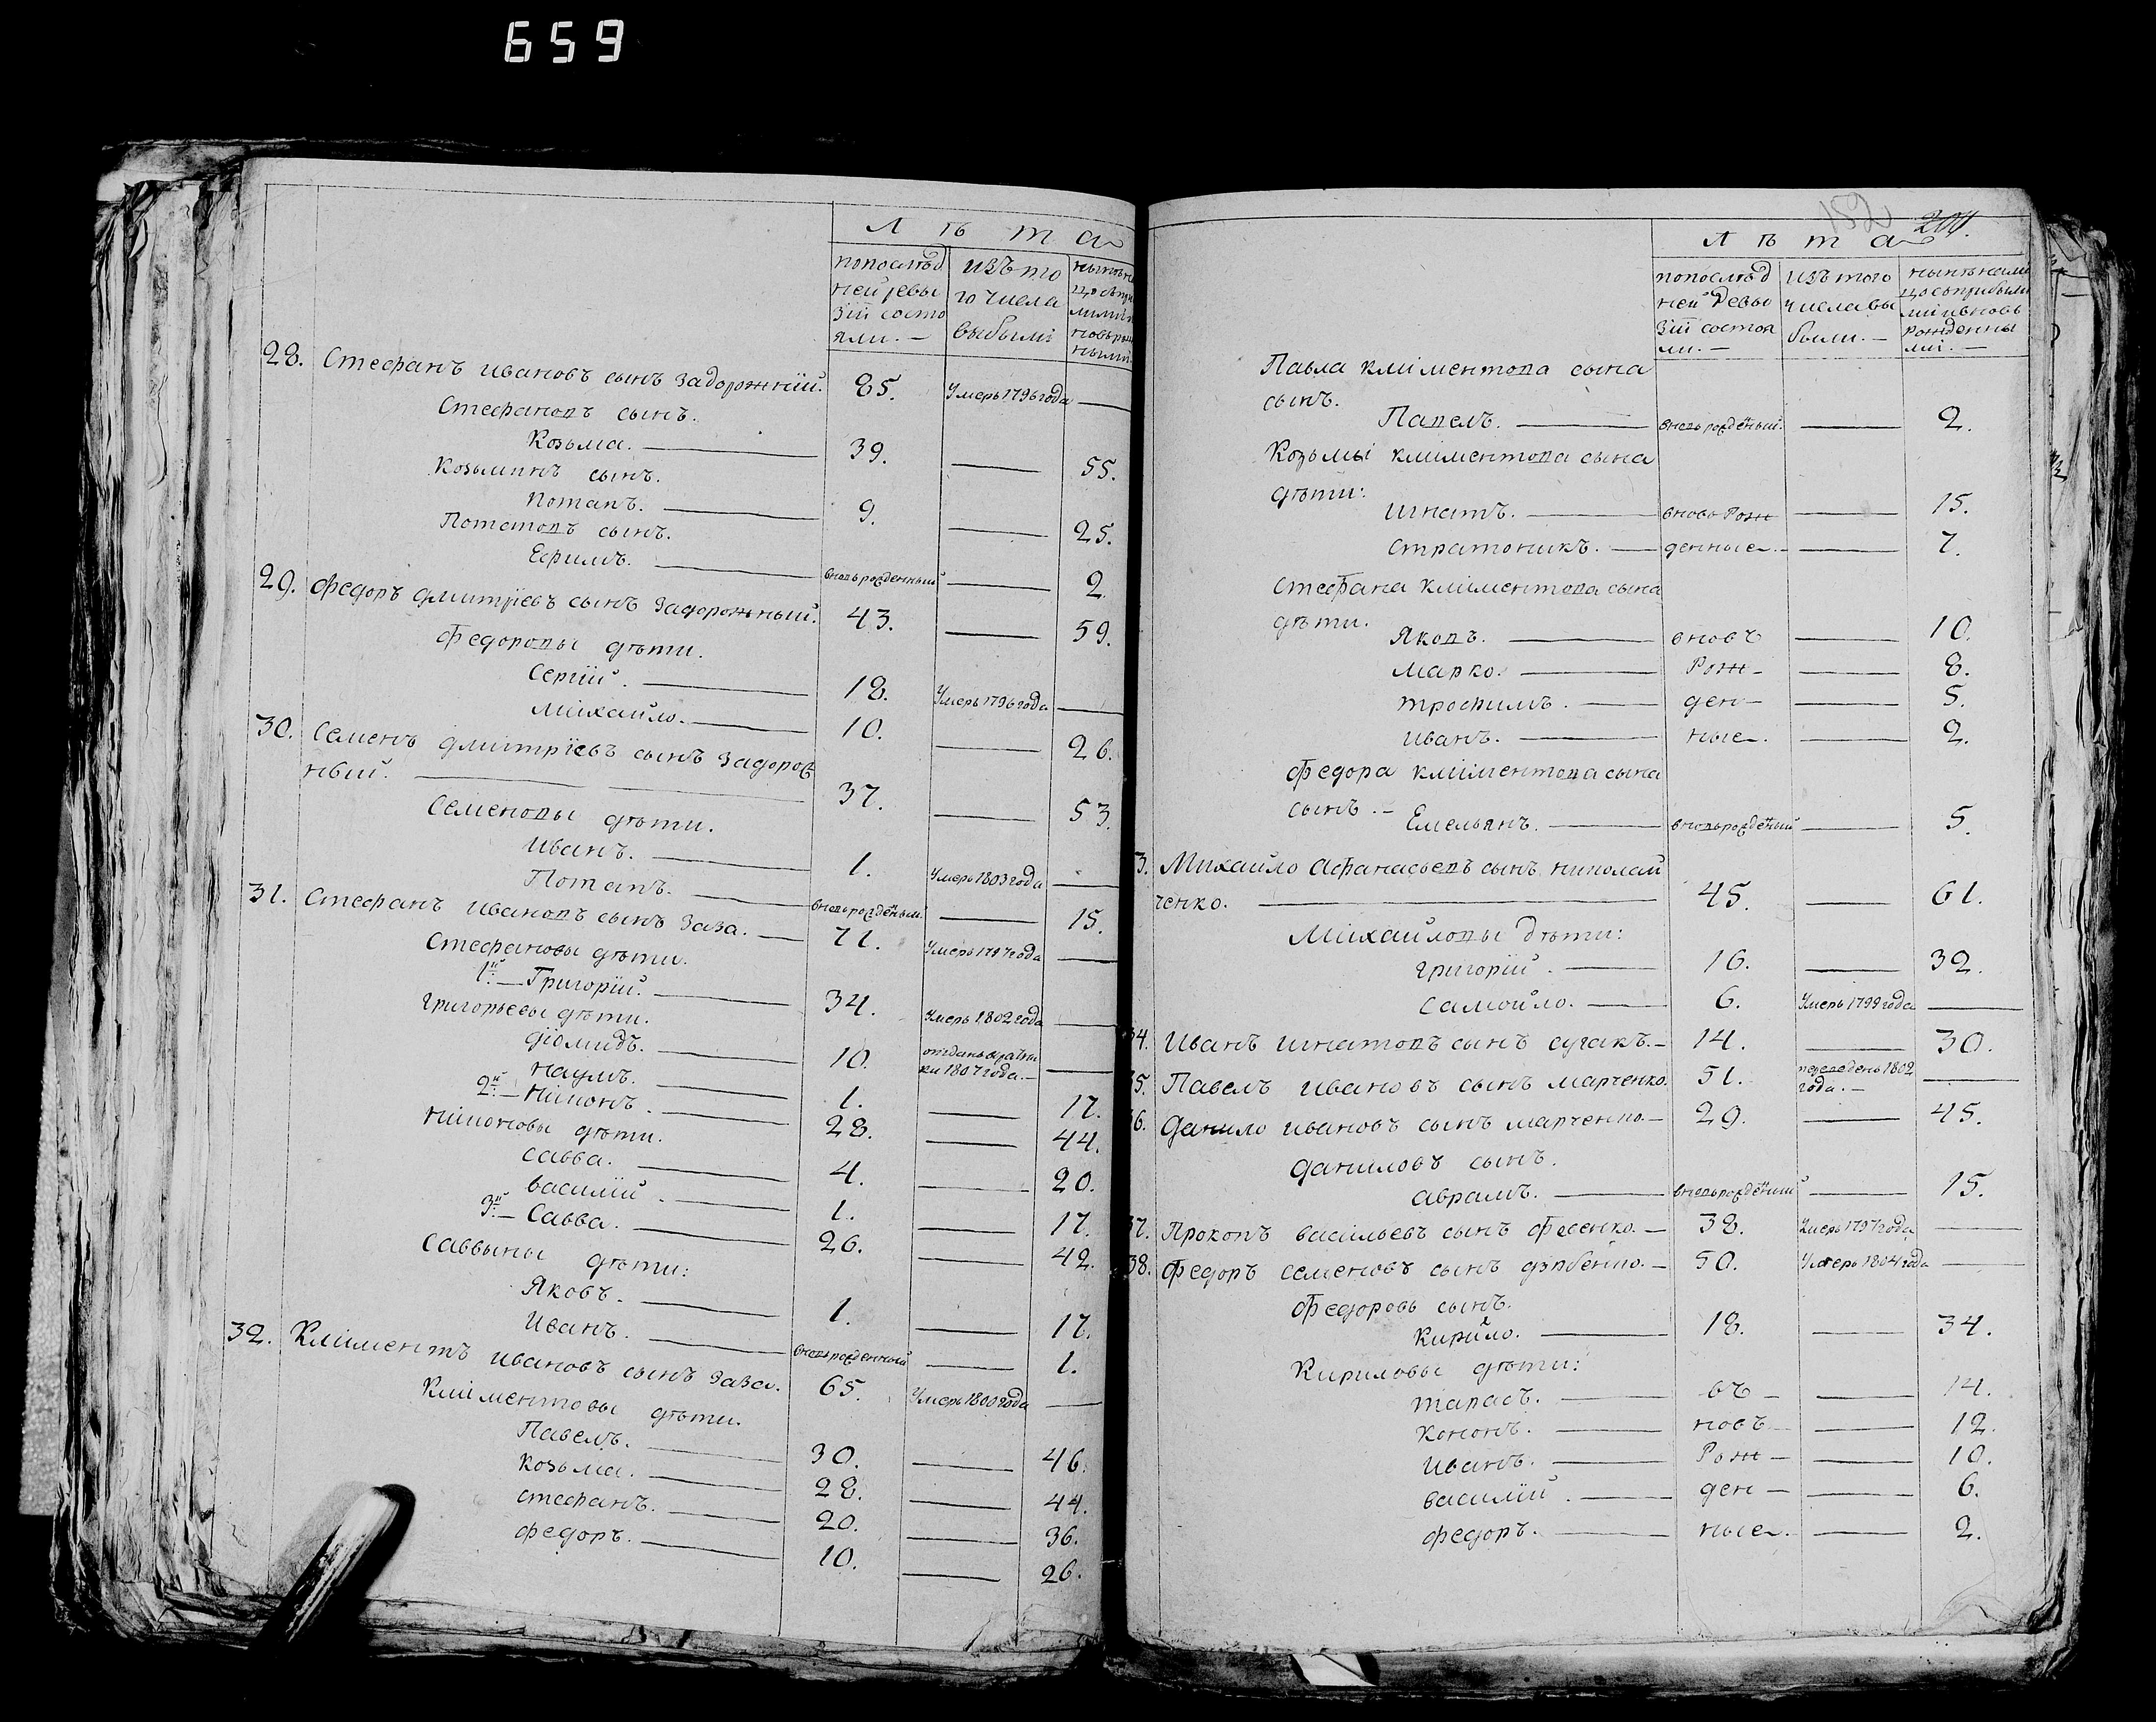 659
Лѣта
попослѣд изъ то
ней ревы го числа
зіи состо выбыли
яли. —
28. Стефанъ Ивановъ сынъ Задорожній. 85. Умеръ 1796 года —
Стефановъ сынъ.
Козьма. — 39. — 55.
Козьминъ сынъ.
Потапъ. — 9. — 25.
Потаповъ сынъ.
Ефимъ. — вновь рожденный — 2
29. Федоръ Дмитріевъ сынъ Задорожный. 43. — 59.
Федоровы дѣти.
Сергій. — 18. Умеръ 1796 года —
Михайло. — 10. — 26.
30. Семенъ Дмитріевъ сынъ Задорож
ный. — 37. — 53.
Семеновы дѣти.
Иванъ. — 1. Умеръ 1803 года —
Потапъ. — вновь рожденый — 15.
31. Стефанъ Ивановъ сынъ Заза. — 71. Умеръ 1797 года —
Стефановы дѣти.
1й — Григорій. — 34. Умеръ 1802 года —
Григорьевы дѣти.
Діомидъ. — 10. отданъ
ки 1807 года. — —
Наумъ. — 1. — 17.
2й — Никонъ. — 28. — 44.
Никоновы дѣти.
Савва. — 4. — 20.
Василій. — 1. — 17.
3й — Савва. — 26. — 42.
Саввины дѣти:
Яковъ. — 1. — 17.
Иванъ. — вновь рожденный — 1.
32. Климентъ Ивановъ сынъ Заза. 65. Умеръ 1800 года —
Климентовы дѣти.
Павелъ. — 30. — 46.
Козьма. — 28. — 44.
Стефанъ. — 20. — 36.
Федоръ. — 10. — 26.
152 204.
Лѣта
попослѣд изъ того нынѣ налi
ней Ревы числа вы цо съприбылы
зіи состоя были. — ми ивновь
ли. — рожденны
ми. —
Павла Климентова сына
сынъ.
Павелъ. — вновь рожденый. — 2.
Козьмы Климентова сына
дѣти:
Игнатъ. — вновь Рож — 15.
Стратоникъ. — денные. — — 7.
Стефана Климентова сына
дѣти.
Яковъ. — вновь — 10.
Марко. — Рож — — 8.
Трофимъ. — ден — — 5.
Иванъ. — ные. — 2.
Федора Климентова сына
сынъ. —
Емельянъ. — вновь рожденый — 5.
3. Михайло Афанасьевъ сынъ Николай
ченко. — 45. — 61.
Михайловы дѣти:
Григорій. — 16. — 32.
Самойло. — 6. Умеръ 1799 года —
34. Иванъ Игнатовъ сынъ Сугакъ. — 14. — 30.
35. Павелъ Ивановъ сынъ Марченко. 51. переведенъ 1802
года. — —
36. Данило Ивановъ сынъ Марченко — 29. — 45.
Даниловъ сынъ.
Аврамъ. — вновь рожденый — 15.
37. Прокопъ Васильевъ сынъ Фесенко. — 38. Умеръ 1797 года —
38. Федоръ Семеновъ сынъ — 50. Умеръ 1804 года —
Федоровъ сынъ.
Кирило. — 18. — 34.
Кириловы дѣти:
Тарасъ. — въ — — 14.
Кононъ. — новъ — — 12.
Иванъ. — Рож — — 10.
Василій. — ден — — 6.
Федоръ. — ные. — 2.